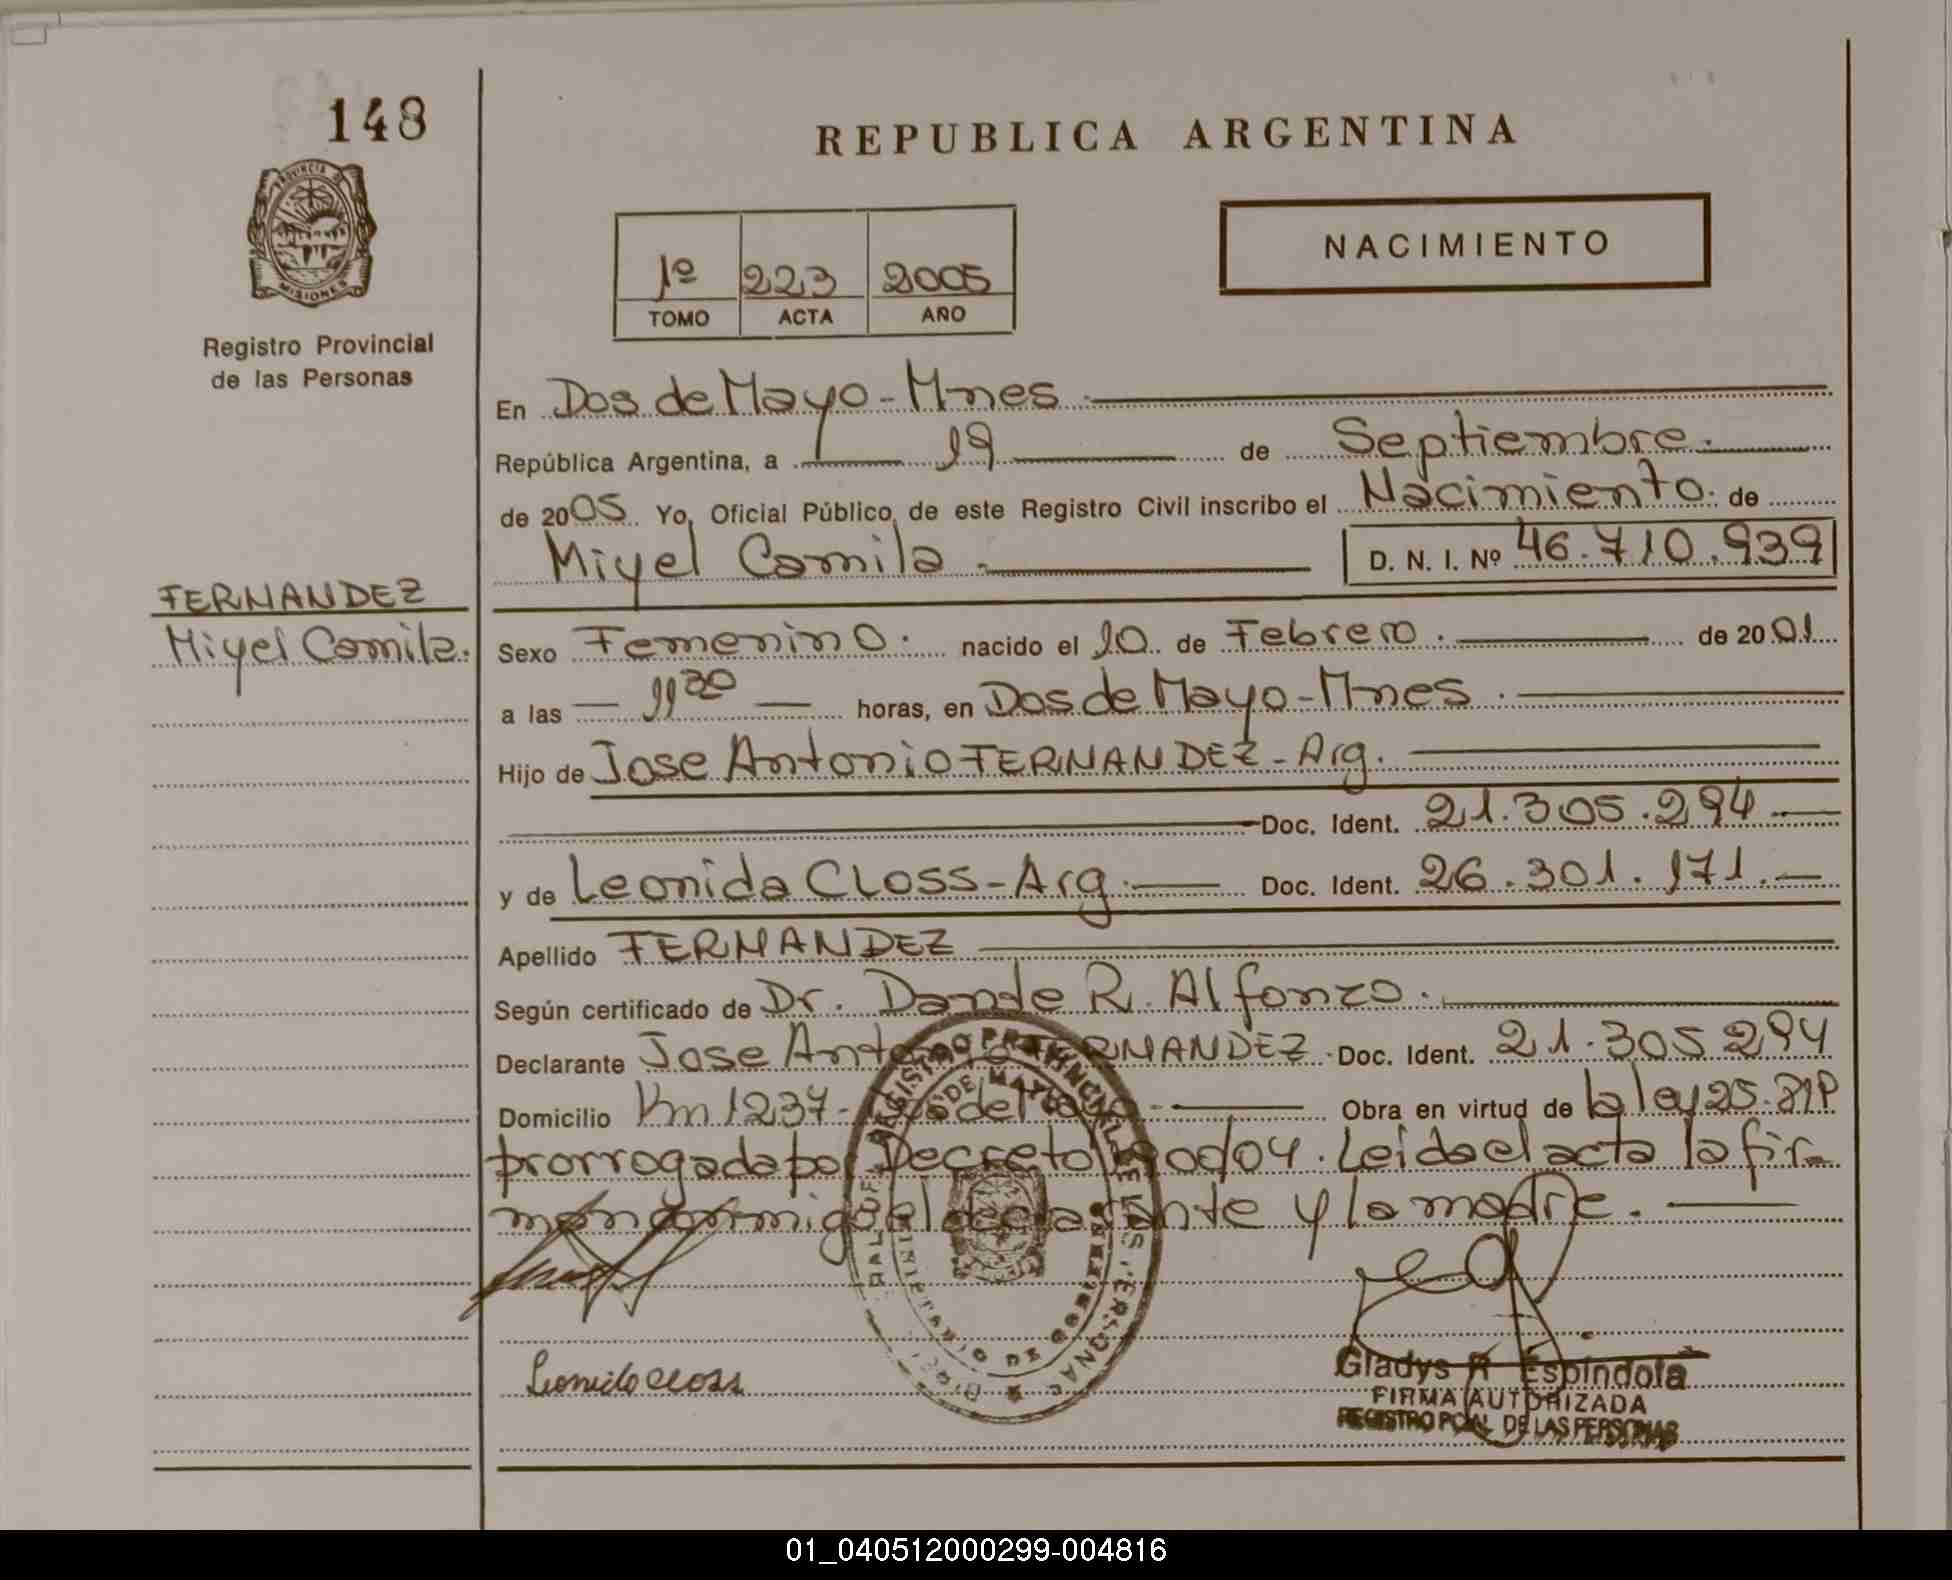 148
REPUBLICA ARGENTINA
PROVINCIA DE
MISIONES
Registro Provincial
de las Personas
1º 223 2005
TOMO ACTA AÑO
NACIMIENTO
En Dos de Mayo - Mnes
República Argentina, a 19 de Septiembre.
de 2005 Yo, Oficial Público, de este Registro Civil inscribo el Nacimiento. de
Miyel Camila D. N. I. Nº 46.710.939
FERNANDEZ
Miyel Camila.
Sexo Femenino. nacido el 10 de Febrero. de 2001
a las 11 30 horas, en Dos de Mayo - Mnes.
Hijo de Jose Antonio FERNANDEZ - Arg.
Doc. Ident. 21.305.294
y de Leonida CLOSS - Arg. Doc. Ident. 26.301.171.
Apellido FERNANDEZ
Según certificado de Dr. Dande R. Alfonzo.
Declarante Jose Antonio FERNANDEZ. Doc. Ident. 21.305 294
Domicilio Km 1237 - Obra en virtud de la ley 25.819
prorrogada por Decreto /04. Leida el acta la fir-
man conmigo el declarante y la madre.
REGISTRO PROVINCIAL DE LAS PERSONAS
MINISTERIO DE GOBIERNO
Leonida closs
Gladys R Espindola
FIRMA AUTORIZADA
REGISTRO PCIAL DE LAS PERSONAS
01_040512000299-004816